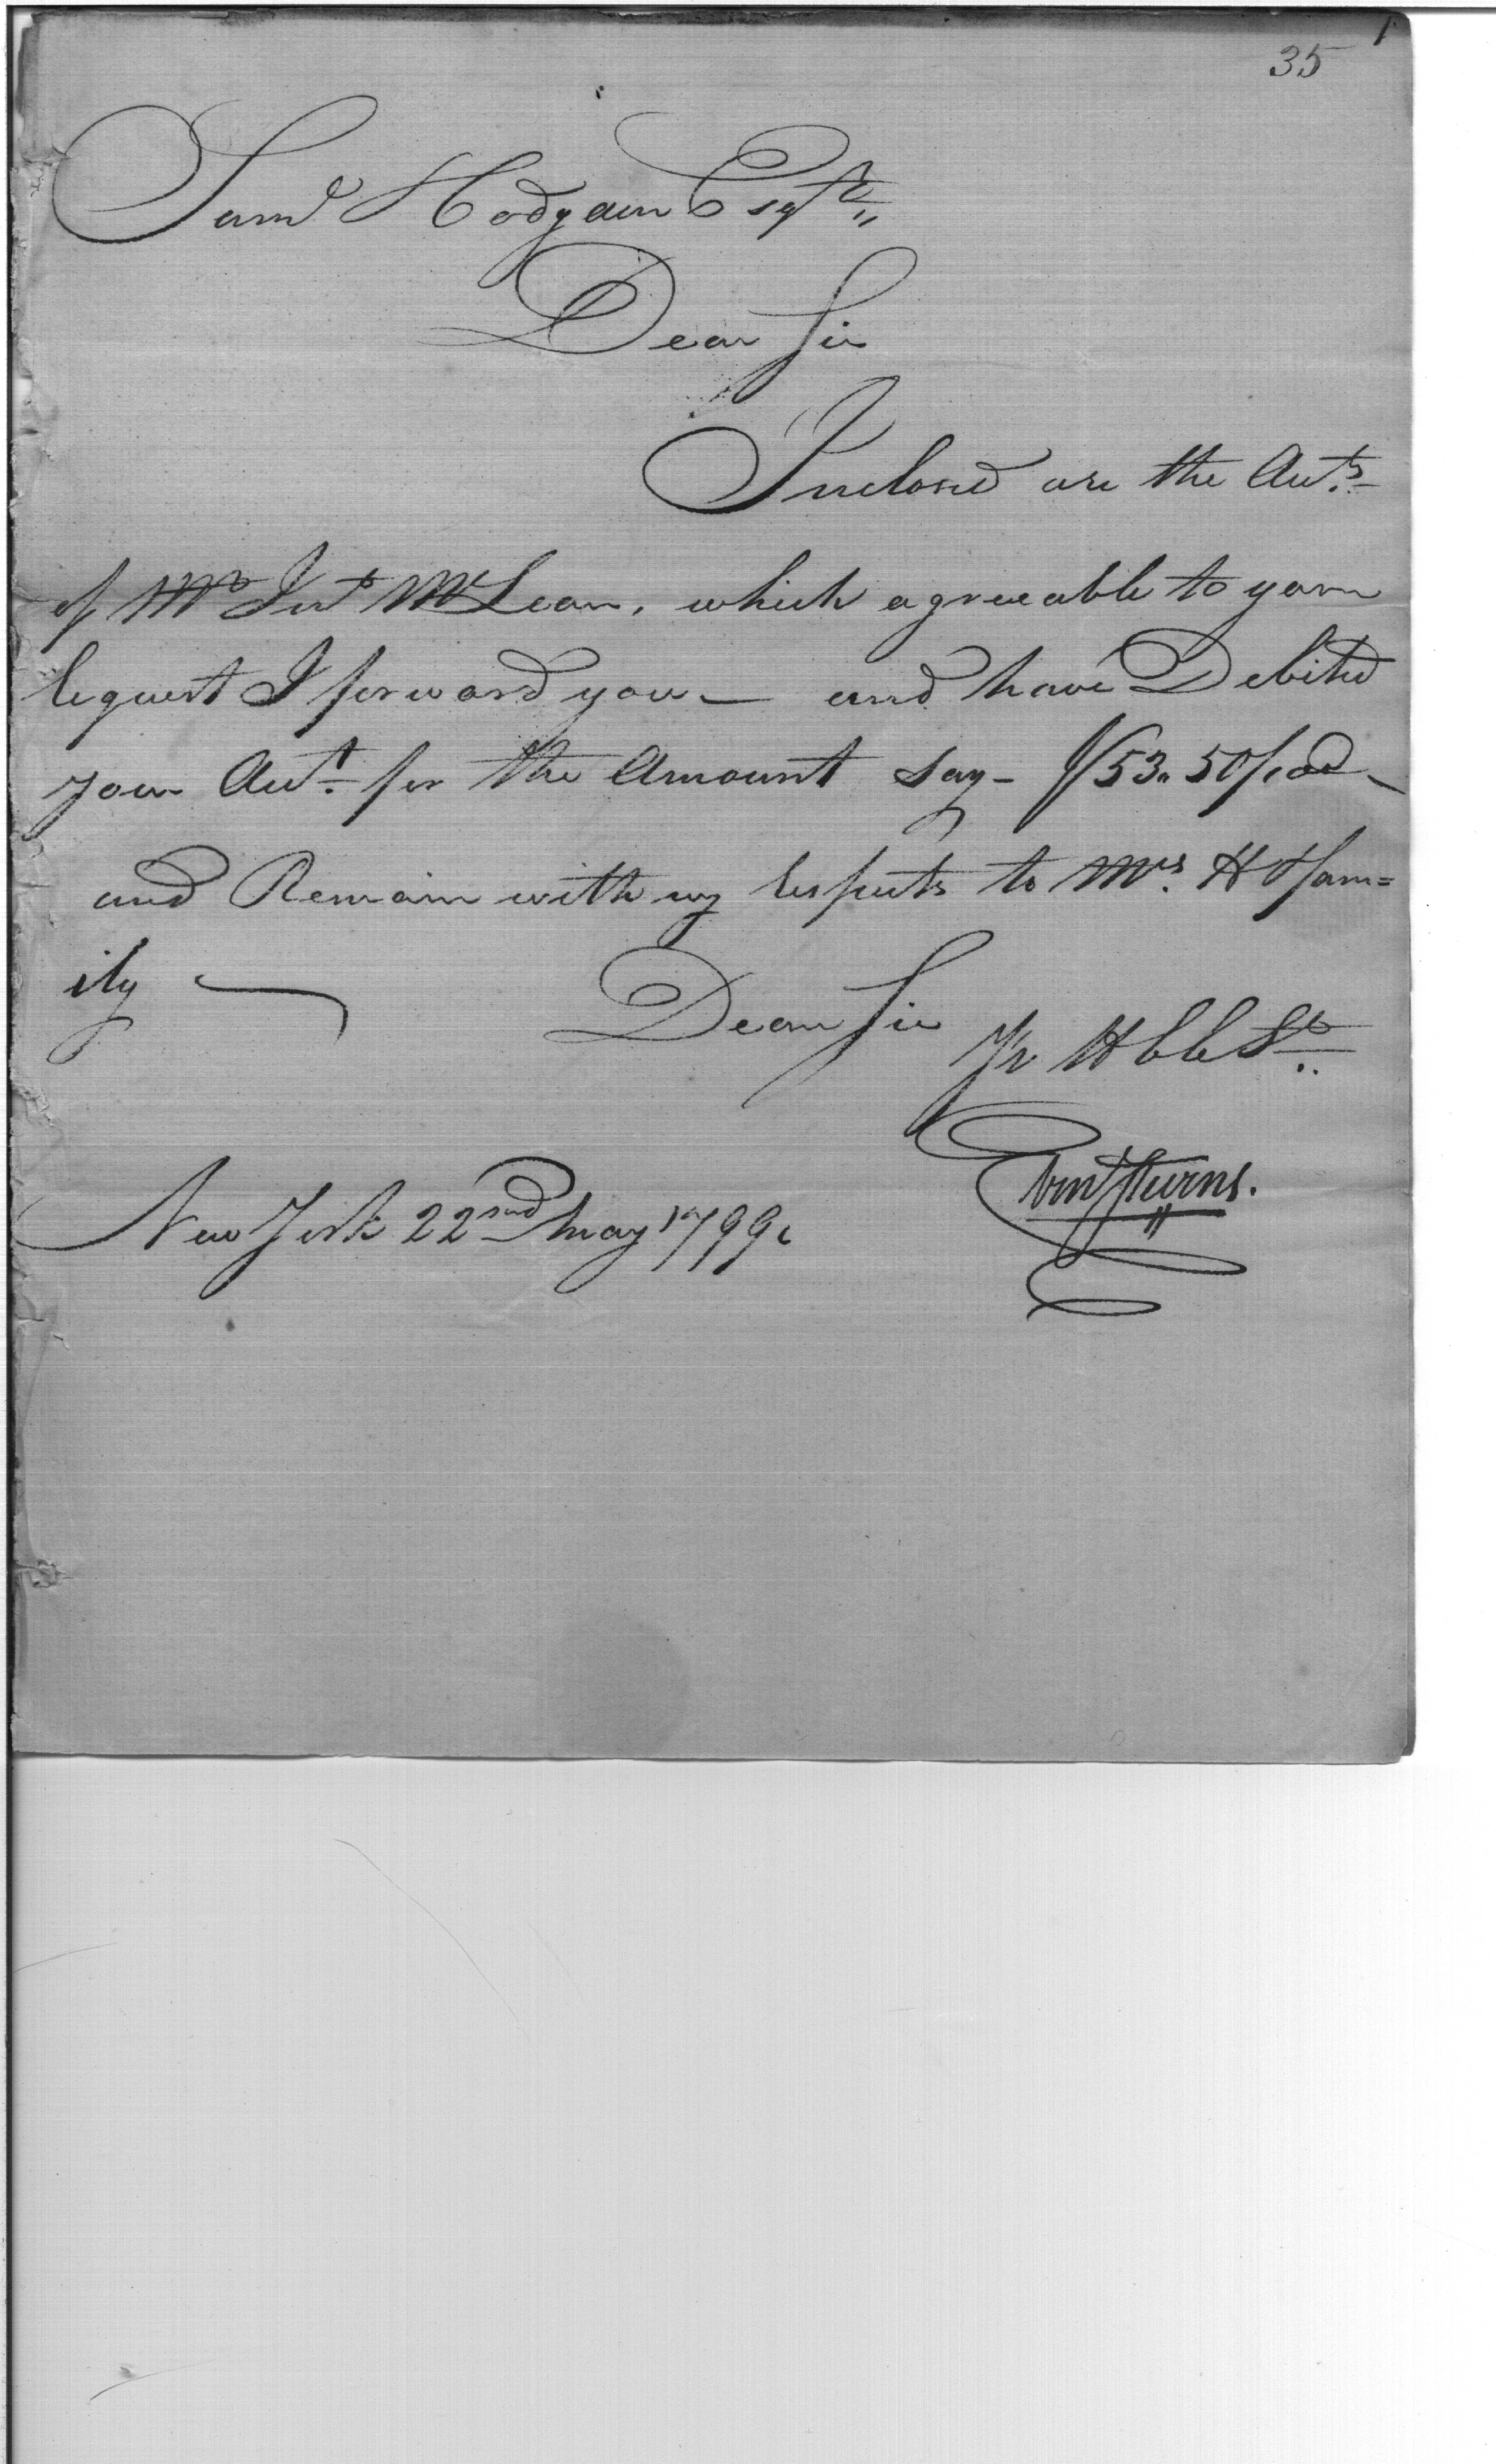 35
Saml Hodgdon Esqre
Dear Sir
Inclosed are the Accts
of Mr Jno McLean, which agreeable to your
request I forward you — and have Debited
your Acct for the Amount say - $53.50/100 -
and Remain with my respects to Mrs H & fam=
ily
Dear Sir
Yr H ble St
New York 22nd May 1799